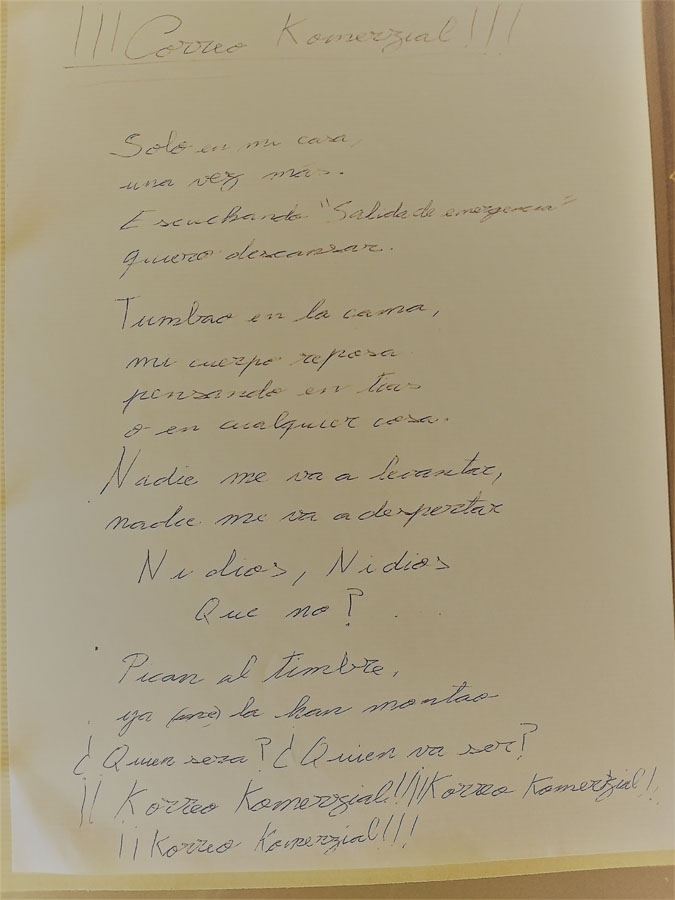 ¡¡¡Correo Komerzial!!!
Solo en mi casa,
una vez mas.
Escuchando "Salida de emergencia"
quiero descansar.
Tumbao en la cama,
mi cuerpo reposa
pensando en
o en cualquier cosa.
Nadie me va a levantar,
nadie me va a despertar
Ni dios, Ni dios
Que no?
Pican al timbre,
ya (me) la han montao
¿Quien sera? ¿Quien va ser?
¡¡Korreo Komerzial!! ¡¡Korreo Komerzial!
¡¡Korreo Komerzial!!!